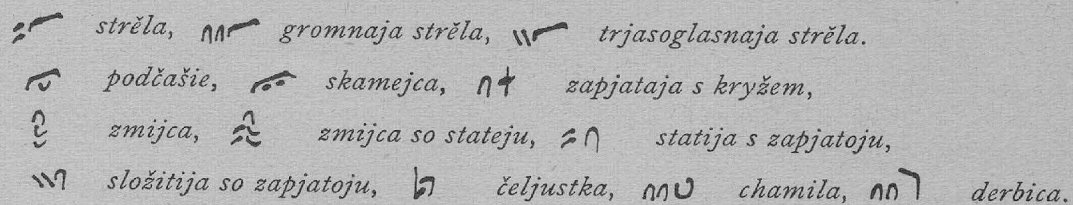 strěla, gromnaja strěla, trjasoglasnaja strěla.
podčašie, skamejca, zapjataja s kryžem,
zmijca, zmijca so stateju, statija s zapjatoju,
složitija so zapjatoju, čeljustka, chamila, derbica.